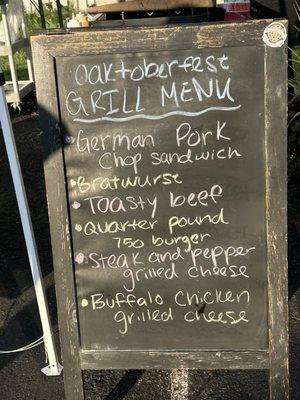 Oaktoberfest
GRILL MENU
• German Pork
Chop sandwich
• Bratwurst
• Toasty beef
• Quarter pound
750 burger
• Steak and pepper
grilled cheese
• Buffalo Chicken
grilled cheese